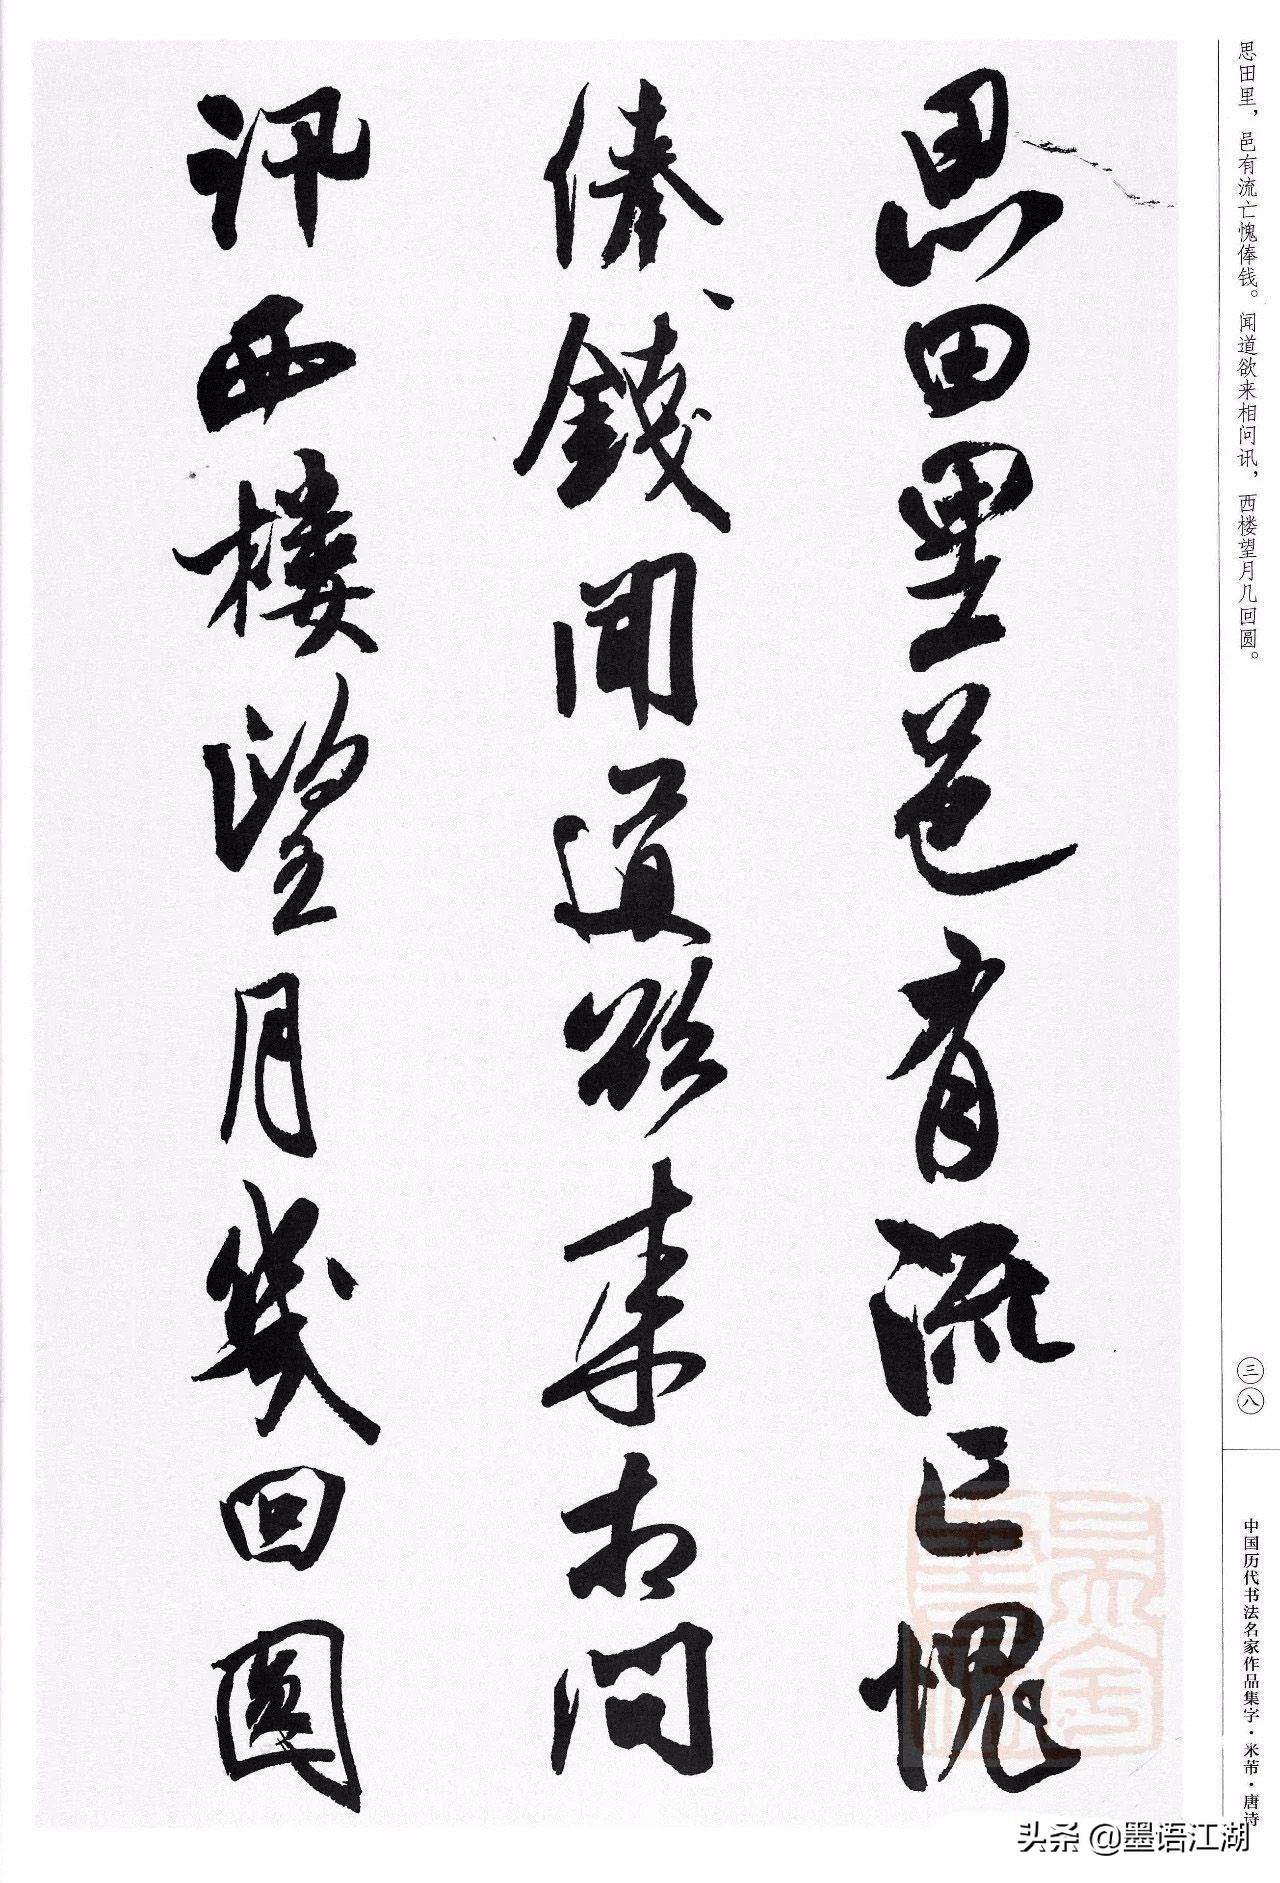 思田里邑有流亡愧
俸錢聞道欲来相問
訊西樓望月幾回圓
思田里，邑有流亡愧俸钱。闻道欲来相问讯，西楼望月几回圆。
三八
中国历代书法名家作品集字·米芾·唐诗
头条 @墨语江湖